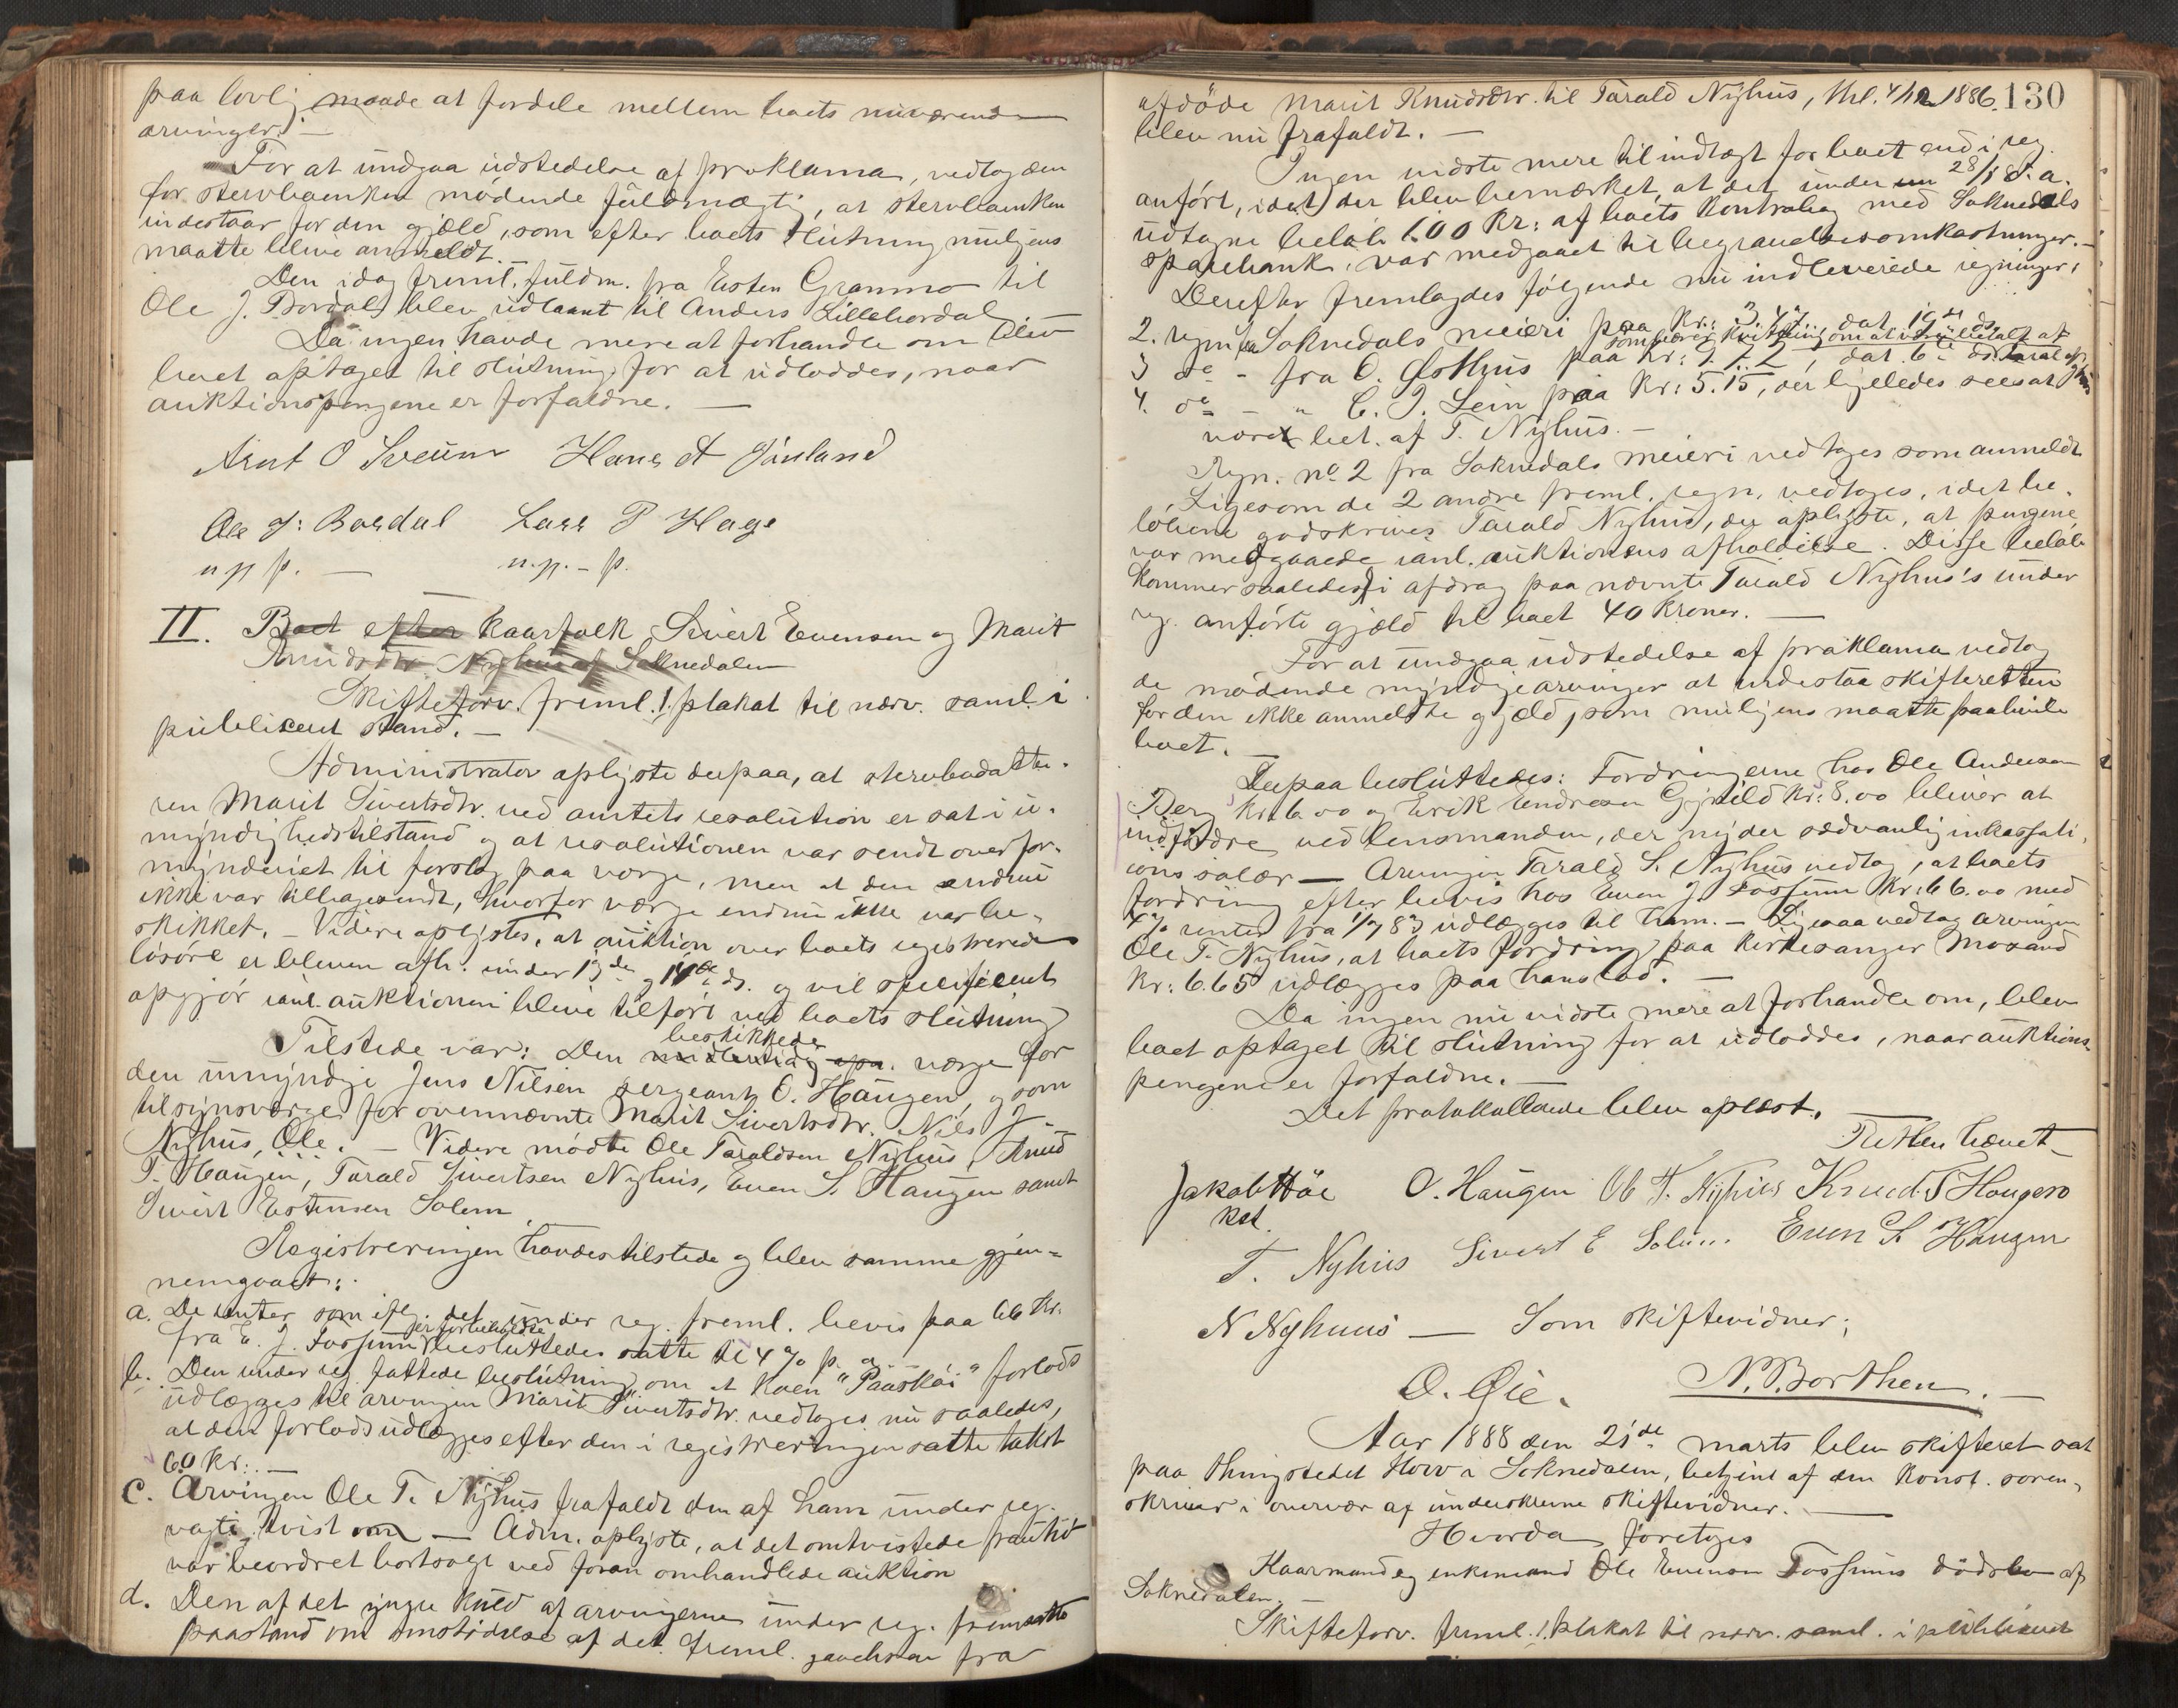 paa lovlig maade at fordele mellem boets nuværende
arvinger. —
For at undgaa udstedelse af proklama, vedtog den
for stervboenken mødende fuldmægtig, at stervboenken
indestaar for den gjæld, som efter boets slutning muligens
maatte blive anmeldt. —
Den idag freml. fuldm. fra Esten Granmo til
Ole J. Bordal blev udlaant til Anders Lillebordal
Da ingen havde mere at forhandle om blev
boet optaget til slutning for at udloddes, naar
auktionspengene er forfaldne. —
Arnt O Sveum Hans A
Ole J: Bordal Lars P Hage
m p p. — m. p. - p.
II. Boet efter kaarfolk Sivert Evensen og Marit
Knudsdtr Nyhus af Soknedalen
Skifteforv. freml. 1. plakat til nærv. saml. i
publiceret stand. —
Administrator oplyste derpaa, at stervbodatte-
ren Marit Sivertsdtr. ved amtets resolution er sat i u-
myndighedstilstand og at resolutionen var sendt overfor-
mynderiet til forslag paa værge, men at den endnu
ikke var tilbagesendt, hvorfor værge endnu ikke var be-
skikket. — Videre oplystes, at auktion over boets registrerede
løsøre er bleven afh. under 13de og 14de ds. og vil specificeret
opgjør saml. auktionen blive tilført ved boets slutning
beskikkede
Tilstede var: Den midlertidig opn. værge for
den umyndige Jens Nilsen sergeant O. Haugen, og som
tilsynsværge for ovennævnte Marit Sivertsdtr. Nils J.
Nyhus, Ole. — Videre mødte Ole Taraldsen Nyhus, Knud
T. Haugen, Tarald Sivertsen Nyhus, Even S. Haugen samt
Sivert Estensen Solem
Registreringen havdes tilstede og blev samme gjen=
nemgaaet:
a. De renter som iflg. det under reg. freml. bevis paa 66 kr.
er forbeholdte
fra E. J. Fossum besluttedes satte til 4 % p. a. —
b. Den under reg. fattede beslutning om at koen "Paaskøi" forlods
udlægges til arvingen Marit Sivertsdtr. vedtoges nu saaledes,
at den forlods udlægges efter den i registreringen satte takst
60 kr. —
c. Arvingen Ole T. Nyhus frafaldt den af ham under reg.
vagte tvist om — Adm. oplyste, at det omtvistede
var beordret bortsolgt ved foran omhandlede auktion
d. Den af det yngre kuld af arvingerne under reg. fremsatte
paastand om omstødelse af det freml. gavebrev fra
130
afdøde Marit Knudsdtr. til Tarald Nyhus, thl. 4/12 1886.
blev nu frafaldt. —
Ingen vidste mere til indtægt for boet end i reg.
anført, idet der blev bemærket, at det under 28/1 d. a.
udtagne beløb 100 Kr: af boets kontrabog med Soknedals
sparebank, var medgaaet til begravelsesomkostninger. —
Derefter fremlagdes følgende nu indleverede regninger:
2. regn. fra Soknedals meieri paa Kr: 3.47 dat 19de ds.
som bærer kvittering om at være betalt af
3 do - fra O. Østhus paa Kr: 9.72, dat. 6te ds. Tarald Nyhus
4. do - " C. J. Lein paa Kr: 5.15, der ligeledes sees at
være bet. af T. Nyhus. —
Regn. no 2 fra Soknedals meieri vedtoges som anmeldt.
Ligesom de 2 andre freml. regn. vedtoges, idet be-
løbene godskrives Tarald Nyhus, der oplyste, at pengene
var medgaaede saml. auktionens afholdelse. Disse beløb
kommer saaledes i afdrag paa nævnte Tarald Nyhus's under
reg. anførte gjæld til boet 40 kroner. —
For at undgaa udstedelse af proklama vedtog
de mødende myndige arvinger at indestaa skifteretten
for den ikke anmeldte gjæld, som muligens maatte paahvile
boet. —
Derpaa besluttedes: Fordringerne hos Ole Andersen
Berg kr. 6.00 og Erik Endresen Gynild kr: 8.00 bliver at
indfordre ved lensmanden, der nyder sædvanlig inkassati-
ons salær — Arvingen Tarald S. Nyhus vedtog, at boets
fordring efter bevis hos Even J. Fossum Kr: 66.00 med
4 % renter fra 1/7 83 udlægges til ham. — Ligesaa vedtog arvingen
Ole T. Nyhus, at boets fordring paa kirkesanger Moxand
kr: 6.65 udlægges paa hans lod. —
Da ingen nu vidste mere at forhandle om, blev
boet optaget til slutning for at udloddes, naar auktions-
pengene er forfaldne. —
Det protokollerede blev oplæst. —
Retten hævet —
Jakob Høe O. Haugen Ole T. Nyhus Knud T Haugen
kst.
T. Nyhus Sivert E Solem Even S. Haugen
N Nyhuus — Som skiftevidner;
O. Øie. N. P. Borthen. —
Aar 1888 den 21de marts blev skifteret sat
paa thingstedet Hov i Soknedalen, betjent af den konst. soren-
skriver i overvær af underskrevne skiftevidner. —
Hvorda foretoges
Kaarmand og enkemand Ole Evensen Fossums dødsbo af
Soknedalen. —
Skifteforv. freml. 1. plakat til nærv. saml. i publiceret